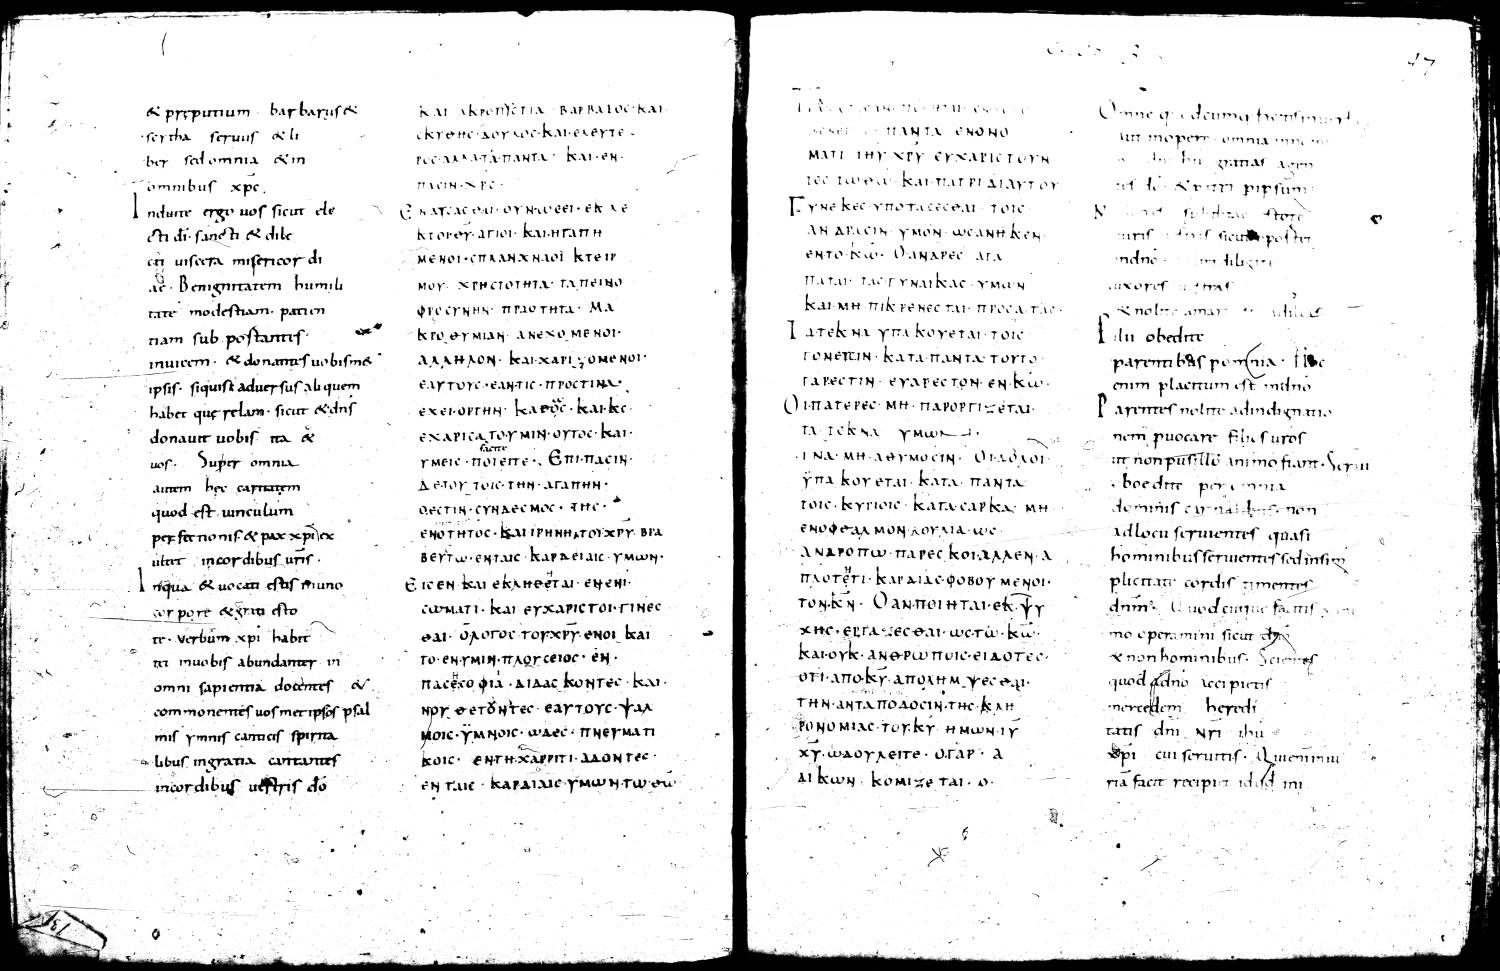 & preputium · barbarus &
scytha seruus & li
ber sed omnia & in
omnibus xpc.
Induite ergo uos sicut ele
cti di · sancti & dile
cti uiscera misericordi
ae · Benignitatem humili
tate modestiam · patien
tiam sub postantes ·
inuicem · & donantes uobisme
ipsis · siquis aduersus aliquem
habet querelam · sicut & dns
donauit uobis ita &
uos · Super omnia
autem hec caritatem
quod est uinculum
perfectionis · & pax xpi ex
ultet incordibus uris ·
Inqua & uocati estis inuno
corpore & grati esto
te · verbum xpi habit
et inuobis abundanter in
omni sapientia docentes &
commonentes uosmetipsos psal
mis ymnis canticis spirita
libus ingratia cantantes
incordibus uestris do
ΚΑΙ ΑΚΡΟΠΙCΤΙΑ · ΒΑΡΒΑΙΟC · ΚΑΙ ·
CΚΥΘΗC · ΔΟΥΛΟC · ΚΑΙ · ΕΛΕΥΤΕ ·
ΡΟC · ΑΛΛΑ · ΤΑ ΠΑΝΤΑ · ΚΑΙ · ΕΝ ·
ΠΑCΙΝ · ΧΡC ·
ΕΝΑΤCΑCΘΑΙ · ΟΥΝ · ΩCΕΙ · ΕΚΛΕ
ΚΤΟΙ ΘΥ · ΑΓΙΟΙ · ΚΑΙ · ΗΓΑΠΗ
ΜΕΝΟΙ · CΠΛΑΝΧΝΑ ΟΙΚΤΕΙΡ
ΜΟΥ · ΧΡΗCΤΟΤΗΤΑ · ΤΑΠΕΙΝΟ
ΦΡΟCΥΝΗΝ · ΠΡΑΟΤΗΤΑ · ΜΑ
ΚΡΟΘΥΜΙΑΝ · ΑΝΕΧΟΜΕΝΟΙ ·
ΑΛΛΗΛΟΝ · ΚΑΙ · ΧΑΡΙΖΟΜΕΝΟΙ ·
ΕΑΥΤΟΥC · ΕΑΝ · ΤΙC · ΠΡΟC ΤΙΝΑ ·
ΕΧΕΙ · ΟΡΓΗΝ · ΚΑΘΟC · ΚΑΙ · ΚC ·
ΕΧΑΡΙCΑΤΟ ΥΜΙΝ · ΟΥΤΟC · ΚΑΙ ·
facite
ΥΜΕΙC · ΠΟΙΕΙΤΕ · ΕΠΙ · ΠΑCΙΝ ·
ΔΕ · ΤΟΥΤΟΙC · ΤΗΝ · ΑΓΑΠΗΝ ·
ΟΕCΤΙΝ · CΥΝΔΕCΜΟC · ΤΗC ·
ΕΝΟΤΗΤΟC · ΚΑΙ ΙΡΗΝΗ · ΤΟΥ ΧΡΥ · ΒΡΑ
ΒΕΥΤΩ · ΕΝΤΑΙC · ΚΑΡΔΕΙΑΙC · ΥΜΩΝ ·
ΕΙC ΕΝ · ΚΑΙ ΕΚΛΗΘΕΤΑΙ · ΕΝ ΕΝΙ ·
CΩΜΑΤΙ · ΚΑΙ ΕΥΧΑΡΙCΤΟΙ · ΓΙΝΕC
ΘΑΙ · Ο ΛΟΓΟC ΤΟΥ ΧΡΥ ΕΝΟΙΚΑΙ
ΤΟ · ΕΝ · ΥΜΙΝ · ΠΛΟΥCΕΙΟC · ΕΝ ·
ΠΑCΕ CΟΦΙΑ · ΔΙΔΑCΚΟΝΤΕC · ΚΑΙ ·
ΝΟΥΘΕΤΟΝΤΕC · ΕΑΥΤΟΥC · ΨΑΛ
ΜΟΙC · ΥΜΝΟΙC · ΩΔΕC · ΠΝΕΥΜΑΤΙ
ΚΟΙC · ΕΝ ΤΗ ΧΑΡΡΙΤΙ · ΑΔΟΝΤΕC ·
ΕΝ ΤΑΙC · ΚΑΡΔΙΑΙC · ΥΜΩΝ · ΤΩ ΘΩ
47
ΠΑΝΤΑ ΕΝΟΝΟ
ΜΑΤΙ ΙΗΥ ΧΡΥ ΕΥΧΑΡΙCΤΟΥΝ
ΤΕC ΤΩ ΘΩ · ΚΑΙ · ΠΑΤΡΙ ΔΙ ΑΥΤΟΥ
ΓΥΝΕΚΕC ΥΠΟΤΑCΕCΘΑΙ · ΤΟΙC ·
ΑΝΔΡΑCΙΝ · ΥΜΟΝ · ΩC ΑΝΗΚΕΝ ·
ΕΝΤΟ · ΚΩ · ΟΙ ΑΝΔΡΕC ΑΓΑ
ΠΑΤΑΙ · ΤΑC ΓΥΝΑΙΚΑC · ΥΜΩΝ
ΚΑΙ · ΜΗ ΠΙΚΡΕΝΕCΤΑΙ · ΠΡΟC ΑΥΤΑC ·
ΤΑ ΤΕΚΝΑ ΥΠΑΚΟΥΕΤΑΙ · ΤΟΙC ·
ΓΟΝΕΥCΙΝ · ΚΑΤΑ · ΠΑΝΤΑ · ΤΟΥΤΟ
ΓΑΡ ΕCΤΙΝ · ΕΥΑΡΕCΤΟΝ · ΕΝ · ΚΩ ·
ΟΙ · ΠΑΤΕΡΕC · ΜΗ · ΠΑΡΟΡΓΙΖΕΤΑΙ ·
ΤΑ ΤΕΚΝΑ ΥΜΩΝ
ΙΝΑ · ΜΗ · ΑΘΥΜΟCΙΝ · ΟΙ ΔΟΛΟΙ
ΥΠΑΚΟΥΕΤΑΙ · ΚΑΤΑ · ΠΑΝΤΑ ·
ΤΟΙC · ΚΥΡΙΟΙC · ΚΑΤΑ CΑΡΚΑ · ΜΗ
ΕΝ ΟΦΘΑΛΜΟΝ ΔΟΥΛΙΑ · ΩC ·
ΑΝΔΡΟΠΩ · ΠΑΡΕCΚΟΙ · ΑΛΛ ΕΝ · Α
ΠΛΟΤΗΤΙ · ΚΑΡΔΙΑC · ΦΟΒΟΥΜΕΝΟΙ ·
ΤΟΝ · ΚΝ · Ο ΑΝ · ΠΟΙΗΤΑΙ · ΕΚ · ΨΥ
ΧΗC · ΕΡΓΑΖΕCΘΑΙ · ΩC ΤΩ · ΚΩ ·
ΚΑΙ · ΟΥΚ · ΑΝΘΡΩΠΟΙC · ΕΙΔΟΤΕC ·
ΟΤΙ · ΑΠΟ · ΚΥ · ΑΠΟΛΗΜΨΕCΘΑΙ ·
ΤΗΝ · ΑΝΤΑΠΟΔΟCΙΝ · ΤΗC · ΚΛΗ
ΡΟΝΟΜΙΑC · ΤΟΥ ΚΥ ΗΜΩΝ · ΙΥ
ΧΥ · Ω ΔΟΥΛΕΙΤΕ · Ο ΓΑΡ · Α
ΔΙΚΩΝ · ΚΟΜΙΖΕΤΑΙ · Ο ·
gratias agen
& patri pipsum
subditae estote
uiris sicut opostit
indno diligite
uxores uestras
& nolite amar
Filii obedite
parentibus pomnia · Hoc
enim placitum est indno
Parentes nolite adindignatio
nem puocare filios uros
ut non pusillo animo fiant · Serui
oboedite per omnia
dominis carnalibus · non
adlocu seruientes quasi
hominibus seruientes sedinsim
plicitate cordis timentes
dnm · Quodcumque facitis
mo operamini sicut
& non hominibus · Scientes
quod adno accipietis
mercedem heredi
tatis dni nri ihu
xpi cui seruitis · Qui eniminiu
ria facit recipiet id qd ini